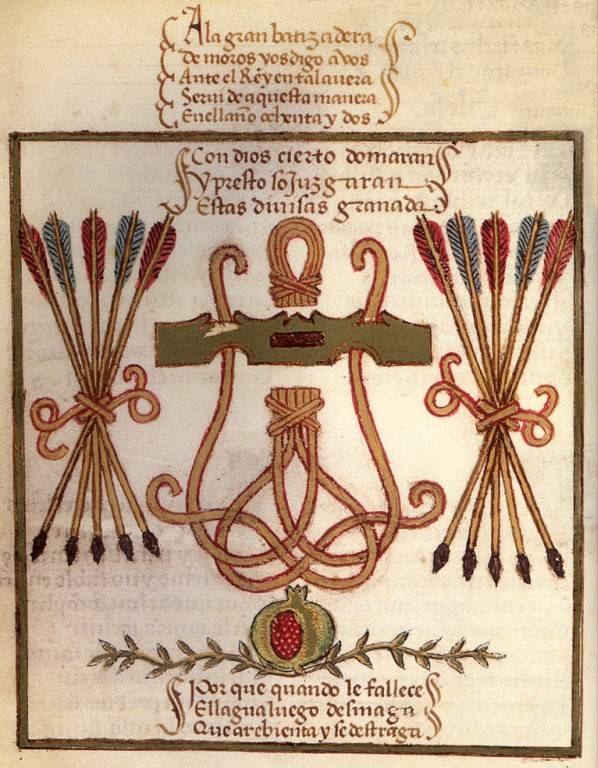 Ala gran batizadera
de moros vos digo avos
Ante el Rey en talavera
Servi de aquesta manera
En el año ochenta y dos
Con dios cierto domaran
y presto sojuzgaran
Estas divisas granada
Por que quando le fallece
El lagua luego desmaga
Que arebienta y se destraga